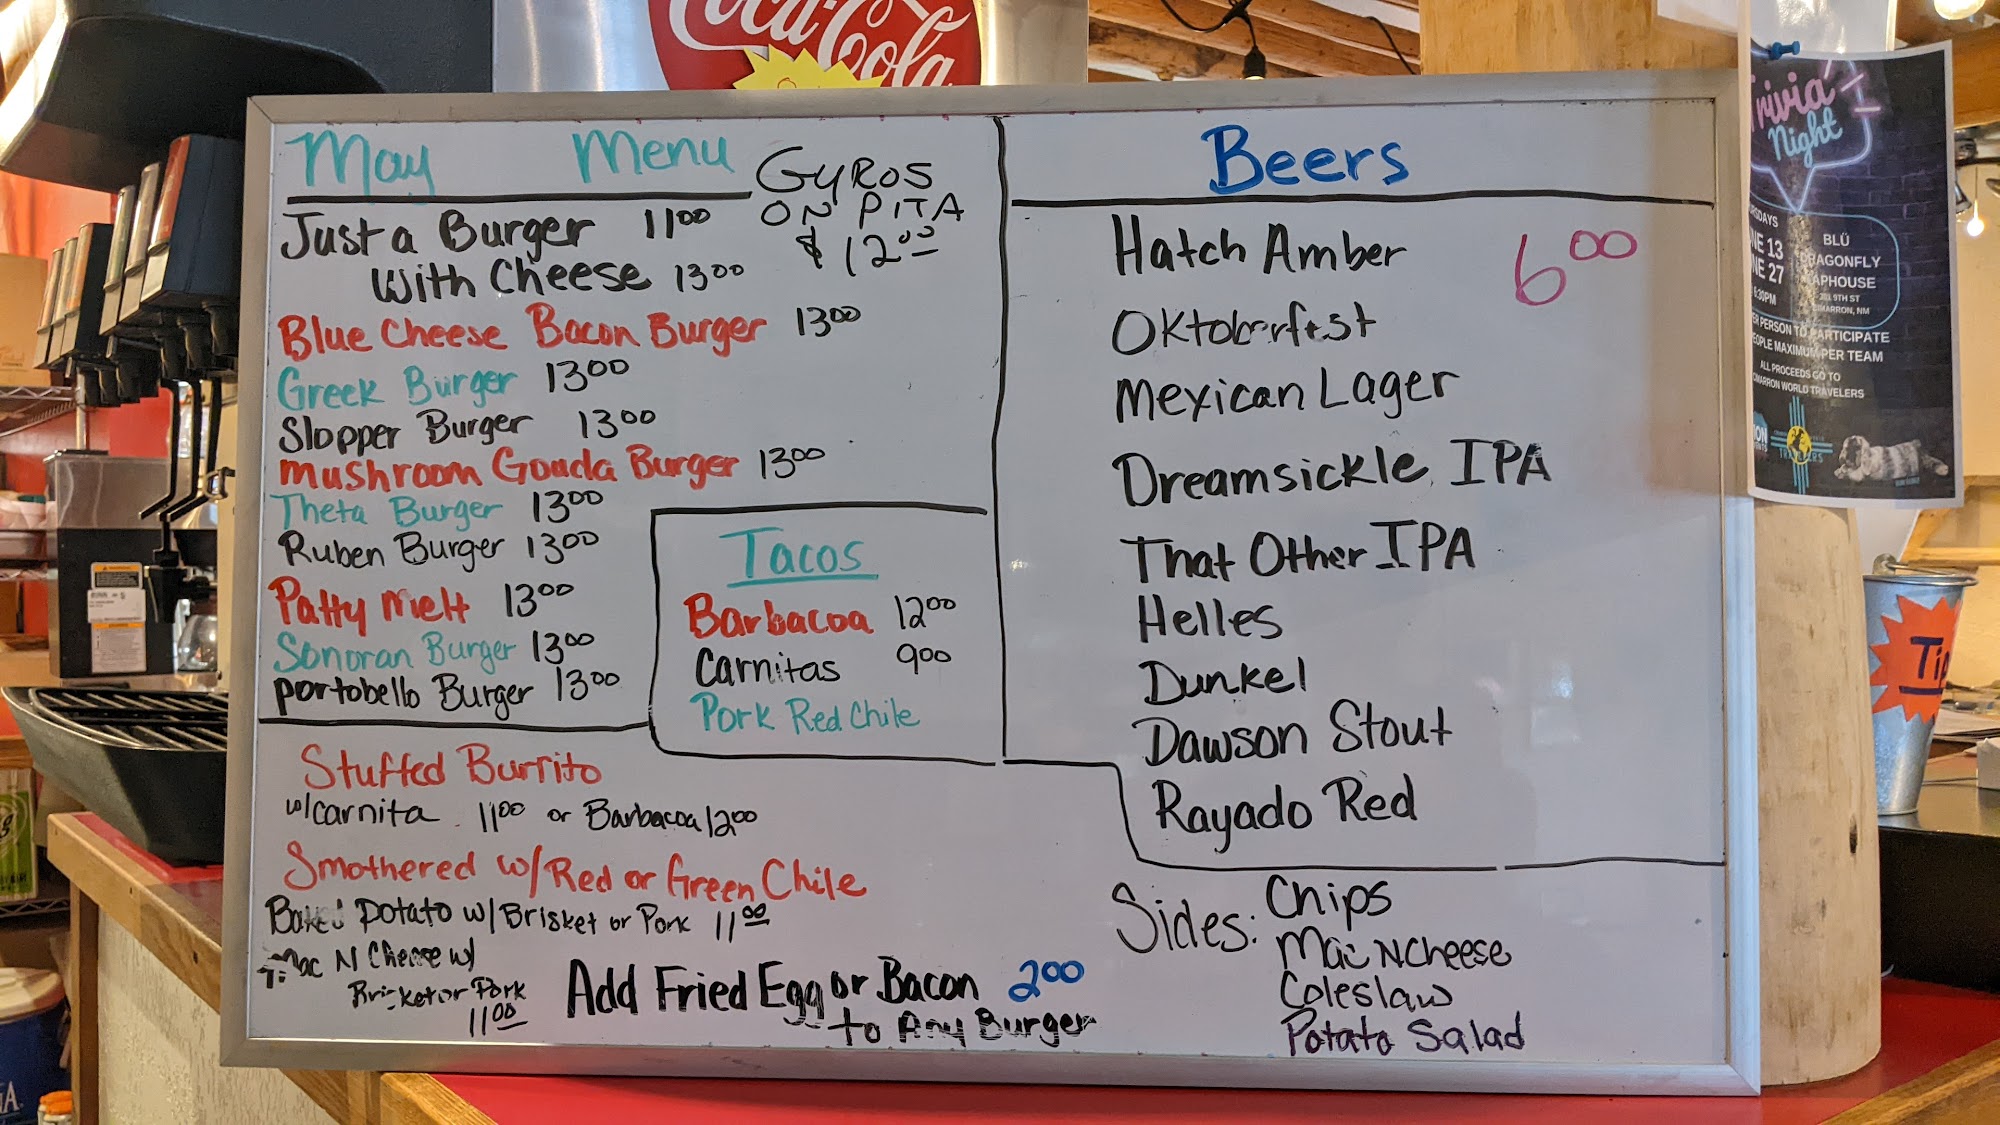 Coca-Cola
May Menu
GYROS
ON PITA
$ 12.00
Just a Burger 11 00
With Cheese 13 00
Blue Cheese Bacon Burger 13 00
Greek Burger 13 00
Slopper Burger 13 00
Mushroom Gouda Burger 13 00
Theta Burger 13 00
Ruben Burger 13 00
Patty Melt 13 00
Sonoran Burger 13 00
portobello Burger 13 00
Tacos
Barbacoa 12 00
Carnitas 9 00
Pork Red Chile
Stuffed Burrito
w/carnita 11 00 or Barbacoa 12 00
Smothered w/Red or Green Chile
Baked potato w/Brisket or Pork 11 00
Mac N Cheese w/
Brisket or Pork
11 00
Add Fried Egg or Bacon 2 00
to Any Burger
Beers
Hatch Amber 6 00
Oktoberfest
Mexican Lager
Dreamsickle IPA
That Other IPA
Helles
Dunkel
Dawson Stout
Rayado Red
Sides: Chips
Mac N Cheese
Coleslaw
Potato Salad
Trivia
Night
NE 13
NE 27
BLÜ
DRAGONFLY
APHOUSE
9TH ST
CIMARRON, NM
PERSON TO PARTICIPATE
MAXIMUM PER TEAM
ALL PROCEEDS GO TO
CIMARRON WORLD TRAVELERS
Tip